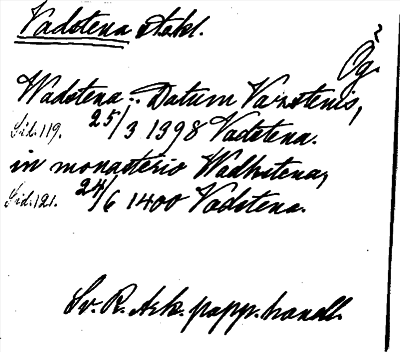 Vadstena stokl.
Ög.
Wadstena: Datum Vazstenis,
Sid. 119. 25/3 1398 Vadstena.
in monasterio Wadhstena,
Sid. 121. 24/6 1400 Vadstena.
Sv. R. Ark. papp. handl.